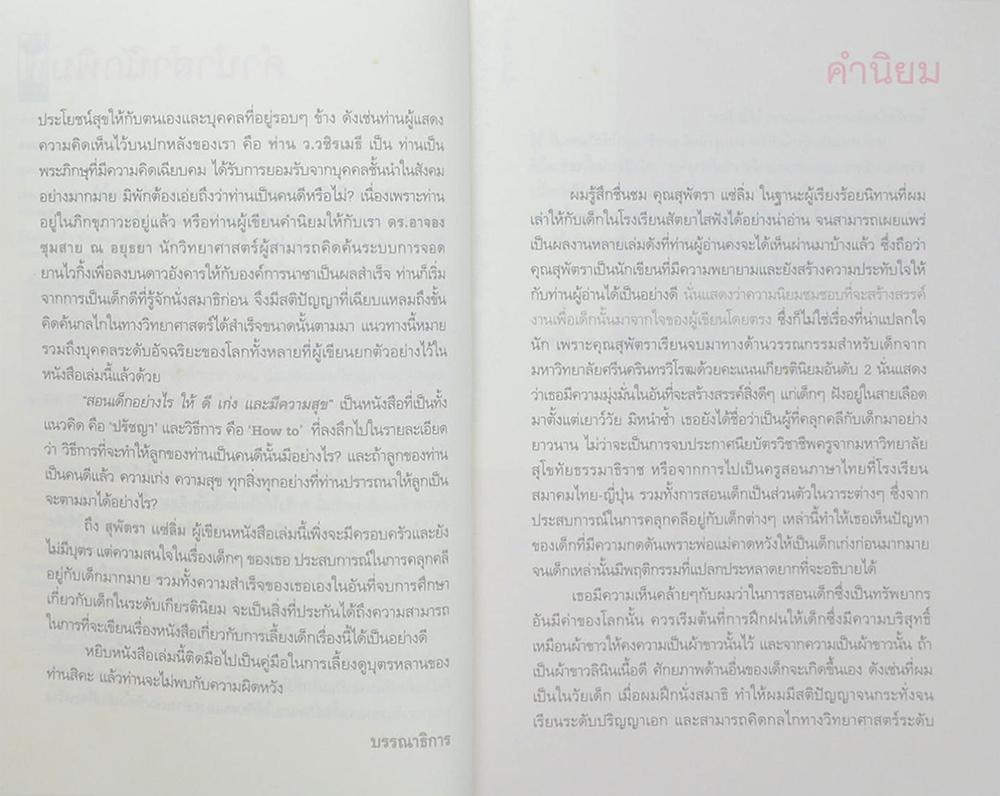 ประโยชน์สุขให้กับตนเองและบุคคลที่อยู่รอบๆ ข้าง ดังเช่นท่านผู้แสดง
ความคิดเห็นไว้บนปกหลังของเรา คือ ท่าน ว.วชิรเมธี เป็น ท่านเป็น
พระภิกษุที่มีความคิดเฉียบคม ได้รับการยอมรับจากบุคคลชั้นนำในสังคม
อย่างมากมาย มิพักต้องเอ่ยถึงว่าท่านเป็นคนดีหรือไม่? เนื่องเพราะท่าน
อยู่ในภิกขุภาวะอยู่แล้ว หรือท่านผู้เขียนคำนิยมให้กับเรา ดร.อาจอง
ชุมสาย ณ อยุธยา นักวิทยาศาสตร์ผู้สามารถคิดค้นระบบการจอด
ยานไวกิ้งเพื่อลงบนดาวอังคารให้กับองค์การนาซาเป็นผลสำเร็จ ท่านก็เริ่ม
จากการเป็นเด็กดีที่รู้จักนั่งสมาธิก่อน จึงมีสติปัญญาที่เฉียบแหลมถึงขั้น
คิดค้นกลไกในทางวิทยาศาสตร์ได้สำเร็จขนาดนั้นตามมา แนวทางนี้หมาย
รวมถึงบุคคลระดับอัจฉริยะของโลกทั้งหลายที่ผู้เขียนยกตัวอย่างไว้ใน
หนังสือเล่มนี้แล้วด้วย
"สอนเด็กอย่างไร ให้ ดี เก่ง และมีความสุข" เป็นหนังสือที่เป็นทั้ง
แนวคิด คือ 'ปรัชญา' และวิธีการ คือ 'How to' ที่ลงลึกไปในรายละเอียด
ว่า วิธีการที่จะทำให้ลูกของท่านเป็นคนดีนั้นมีอย่างไร? และถ้าลูกของท่าน
เป็นคนดีแล้ว ความเก่ง ความสุข ทุกสิ่งทุกอย่างที่ท่านปรารถนาให้ลูกเป็น
จะตามมาได้อย่างไร?
ถึง สุพัตรา แซ่ลิ่ม ผู้เขียนหนังสือเล่มนี้เพิ่งจะมีครอบครัวและยัง
ไม่มีบุตร แต่ความสนใจในเรื่องเด็กๆ ของเธอ ประสบการณ์ในการคลุกคลี
อยู่กับเด็กมากมาย รวมทั้งความสำเร็จของเธอเองในอันที่จบการศึกษา
เกี่ยวกับเด็กในระดับเกียรตินิยม จะเป็นสิ่งที่ประกันได้ถึงความสามารถ
ในการที่จะเขียนเรื่องหนังสือเกี่ยวกับการเลี้ยงเด็กเรื่องนี้ได้เป็นอย่างดี
หยิบหนังสือเล่มนี้ติดมือไปเป็นคู่มือในการเลี้ยงดูบุตรหลานของ
ท่านสิคะ แล้วท่านจะไม่พบกับความผิดหวัง
บรรณาธิการ
คำนิยม
ผมรู้สึกชื่นชม คุณสุพัตรา แซ่ลิ่ม ในฐานะผู้เรียงร้อยนิทานที่ผม
เล่าให้กับเด็กในโรงเรียนสัตยาไสฟังได้อย่างน่าอ่าน จนสามารถเผยแพร่
เป็นผลงานหลายเล่มดังที่ท่านผู้อ่านคงจะได้เห็นผ่านมาบ้างแล้ว ซึ่งถือว่า
คุณสุพัตราเป็นนักเขียนที่มีความพยายามและยังสร้างความประทับใจให้
กับท่านผู้อ่านได้เป็นอย่างดี นั่นแสดงว่าความนิยมชมชอบที่จะสร้างสรรค์
งานเพื่อเด็กนั้นมาจากใจของผู้เขียนโดยตรง ซึ่งก็ไม่ใช่เรื่องที่น่าแปลกใจ
นัก เพราะคุณสุพัตราเรียนจบมาทางด้านวรรณกรรมสำหรับเด็กจาก
มหาวิทยาลัยศรีนครินทรวิโรฒด้วยคะแนนเกียรตินิยมอันดับ 2 นั่นแสดง
ว่าเธอมีความมุ่งมั่นในอันที่จะสร้างสรรค์สิ่งดีๆ แก่เด็กๆ ฝังอยู่ในสายเลือด
มาตั้งแต่เยาว์วัย มิหนำซ้ำ เธอยังได้ชื่อว่าเป็นผู้ที่คลุกคลีกับเด็กมาอย่าง
ยาวนาน ไม่ว่าจะเป็นการจบประกาศนียบัตรวิชาชีพครูจากมหาวิทยาลัย
สุโขทัยธรรมาธิราช หรือจากการไปเป็นครูสอนภาษาไทยที่โรงเรียน
สมาคมไทย-ญี่ปุ่น รวมทั้งการสอนเด็กเป็นส่วนตัวในวาระต่างๆ ซึ่งจาก
ประสบการณ์ในการคลุกคลีอยู่กับเด็กต่างๆ เหล่านี้ทำให้เธอเห็นปัญหา
ของเด็กที่มีความกดดันเพราะพ่อแม่คาดหวังให้เป็นเด็กเก่งก่อนมากมาย
จนเด็กเหล่านั้นมีพฤติกรรมที่แปลกประหลาดยากที่จะอธิบายได้
เธอมีความเห็นคล้ายๆกับผมว่าในการสอนเด็กซึ่งเป็นทรัพยากร
อันมีค่าของโลกนั้น ควรเริ่มต้นที่การฝึกฝนให้เด็กซึ่งมีความบริสุทธิ์
เหมือนผ้าขาวให้คงความเป็นผ้าขาวนั้นไว้ และจากความเป็นผ้าขาวนั้น ถ้า
เป็นผ้าขาวลินินเนื้อดี ศักยภาพด้านอื่นของเด็กจะเกิดขึ้นเอง ดังเช่นที่ผม
เป็นในวัยเด็ก เมื่อผมฝึกนั่งสมาธิ ทำให้ผมมีสติปัญญาจนกระทั่งจน
เรียนระดับปริญญาเอก และสามารถคิดกลไกทางวิทยาศาสตร์ระดับ